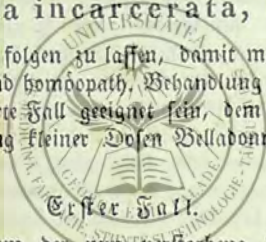 a incarcerata,
folgen zu laſſen, damit m
d homöopath. Behandlung
rte Fall geeignet ſein, dem
g kleiner Doſen Belladonn
Erſter Fall.
UNIVERSITATEA